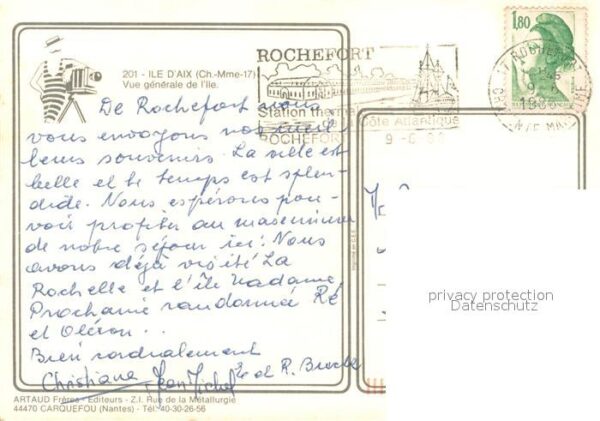 201 - ILE D'AIX (Ch.-Mme-17)
Vue générale de l'Ile.
ROCHEFORT
Station thermale
Côte Atlantique
ROCHEFORT
9-6 86
1,80
De Rochefort nous
vous envoyons nos meil-
leurs souvenirs. La ville est
belle et le temps est splen-
dide. Nous espérons pou-
voir profiter au maximum
de notre séjour ici. Nous
avons déjà visité La
Rochelle et l'île Madame
Prochaine randonnée Ré
et Oléron..
Bien cordialement
Christiane Jean Michel et R.
privacy protection
Datenschutz
ARTAUD Frères - Editeurs - Z.I. Rue de la Métallurgie
44470 CARQUEFOU (Nantes) - Tél. 40-30-26-56